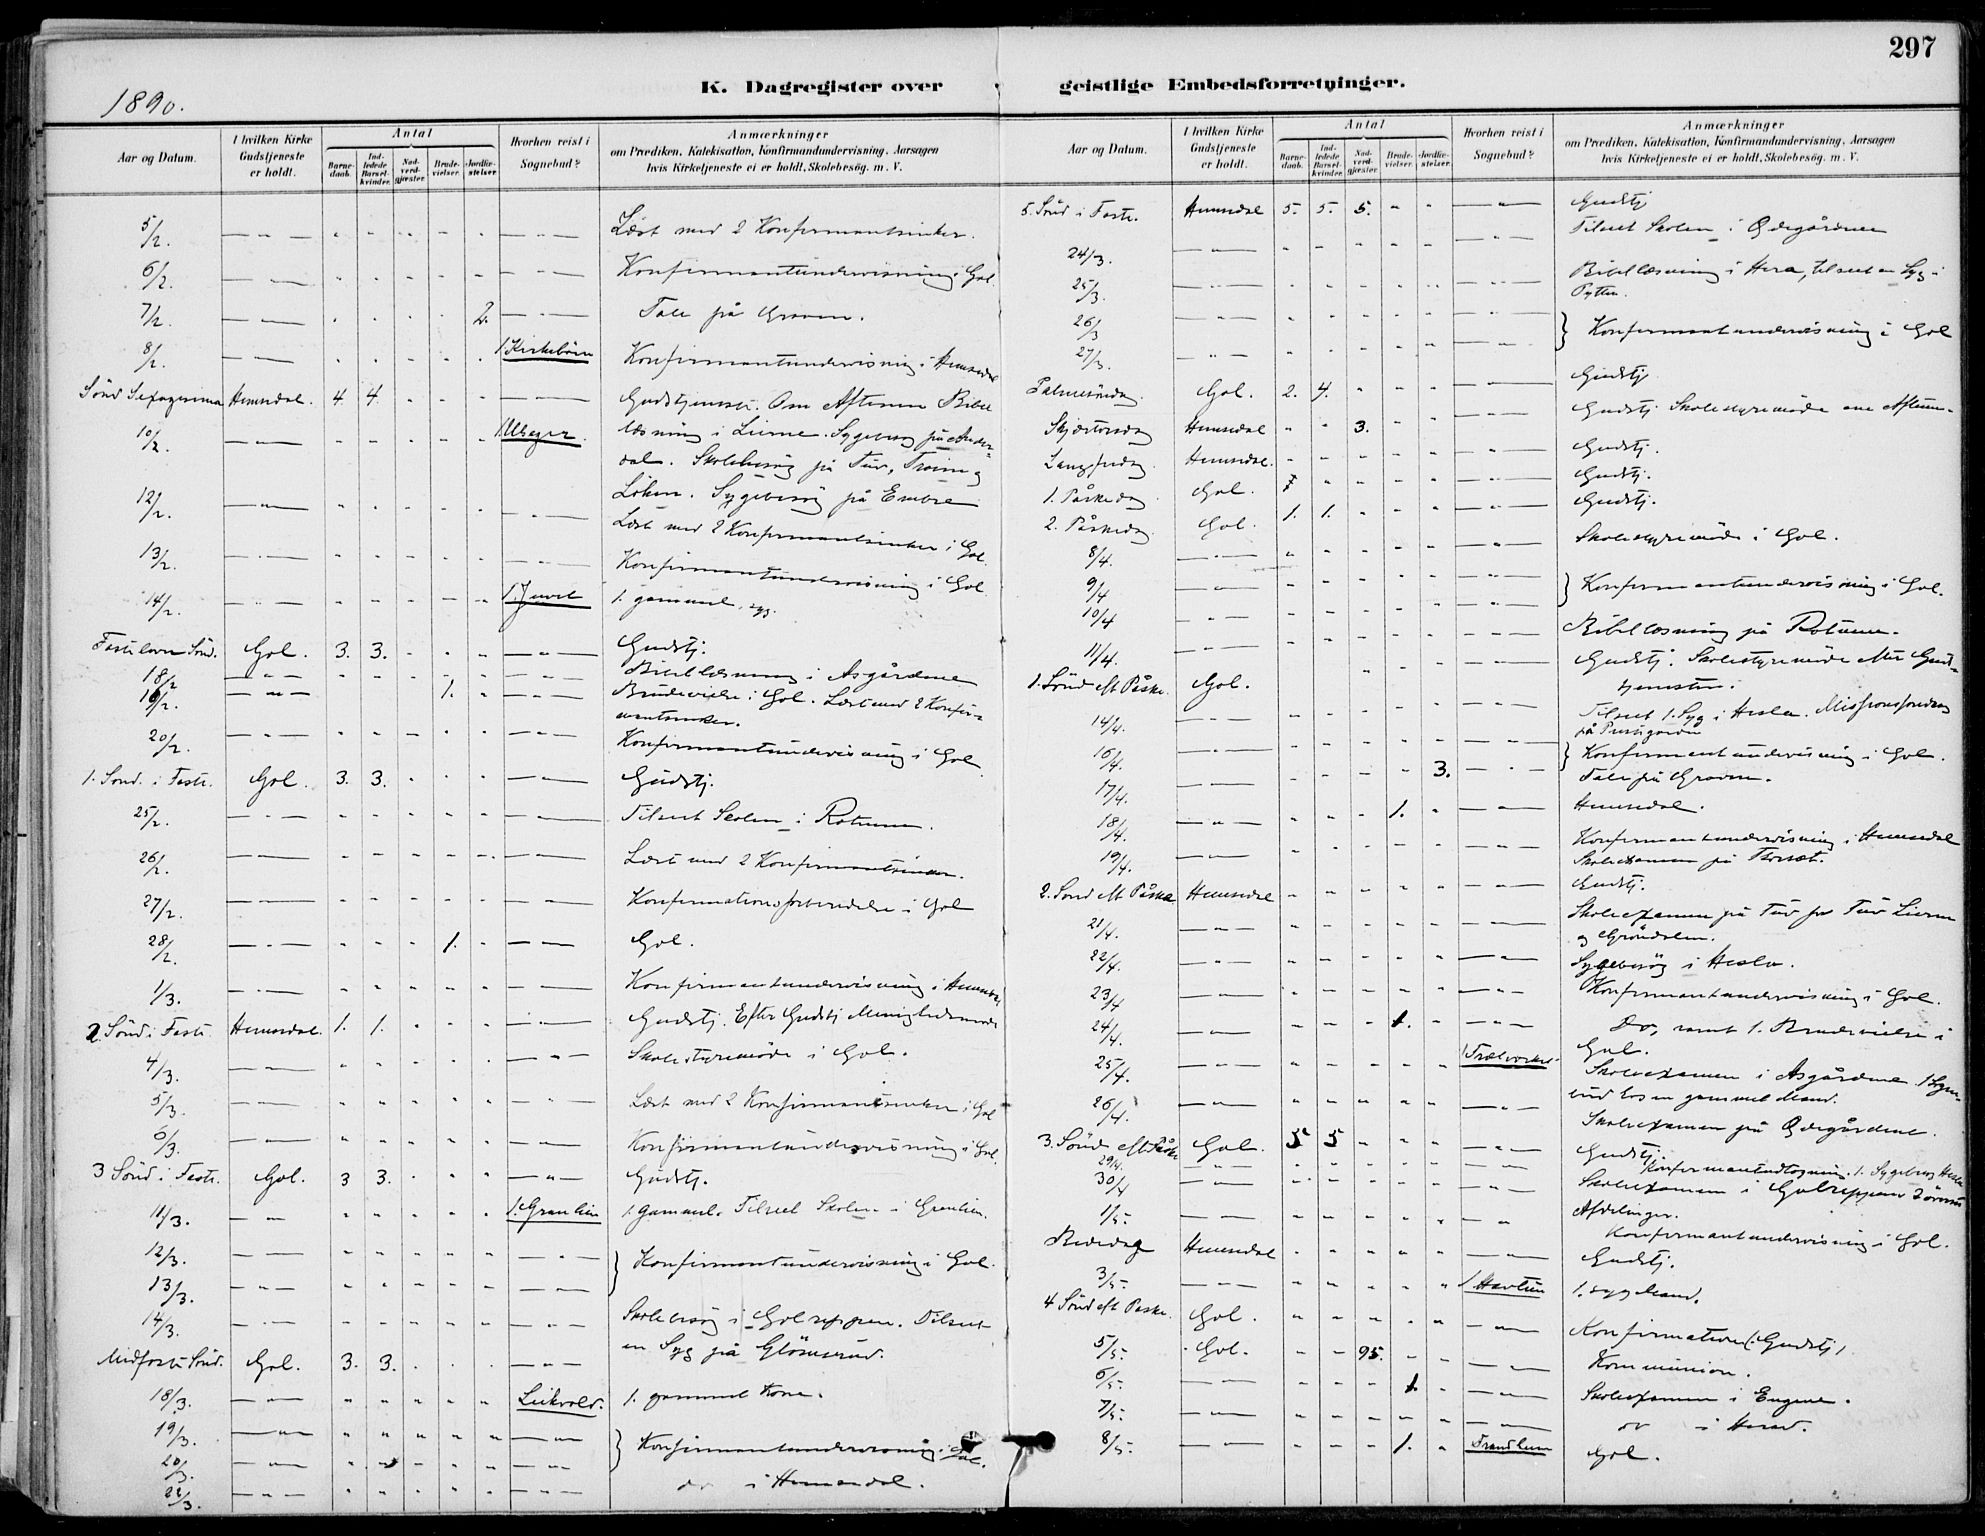 297
K. Dagregister over geistlige Embedsforretninger.
1890.
Aar og Datum.
I hvilken Kirke Gudstjeneste er holdt.
Antal
Barne-daab.
Ind-ledede Barsel-kvinder.
Nad-verd-gjæster.
Brude-vielser.
Jordfæ-stelser.
Hvorhen reist i Sognebud?
Anmærkninger
om Prædiken, Katekisation, Konfirmandundervisning, Aarsagen
hvis Kirketjeneste ei er holdt, Skolebesög. m. V.
5/2. Læst med 2 Konfirmantsinker.
6/2. Konfirmantundervisning i Gol
7/2. 2. Tale på Graven.
8/2. 1. Kirkeböen Konfirmantundervisning i Hemsedal
Sönd Sexagesima Hemsedal. 4. 4. Gudstjeneste. Om Aftenen Bibel
10/2. læsning i Lierne. Sygebesög på
dal. Skolebesög på Tuv, Trøim og
12/2. Löken. Sygebesög på Embre
Læst med 2 Konfirmantsinker i Gol
13/2. Konfirmantundervisning i Gol
14/2. 1. gammel syg.
Fastelavn Sönd. Gol. 3. 3. Gudstj.
18/2 Bibellæsning i Åsgårdene
19/2. 1. Brudevielse i Gol. Læst med 2 Konfir-
mantsinker.
20/2. Konfirmantundervisning i Gol
1. Sönd. i Faste. Gol. 3. 3. Gudstj.
25/2. Tilseet Skolen i Rotnem.
26/2. Læst med 2 Konfirmantsinker.
27/2. Konfirmationsforberedelse i Gol
28/2. 1. Gol.
1/3. Konfirmantundervisning i Hemsedal
2 Sönd i Faste Hemsedal. 1. 1. Gudstj. Efter Gudstj Menighedsmöde
4/3. Skolestyremöde i Gol.
5/3. Læst med 2 Konfirmantsinker i Gol
6/3. Konfirmantundervisning i Gol
3 Sönd i Faste. Gol. 3 3. Gudstj.
11/3. 1. Granlien 1. gammel. Tilseet Skolen i Granlien.
12/3. } Konfirmantundervisning i Gol.
13/3.
14/3. Skolebesög i Golreppen. Tilseet
en Syg på Glösmerud.
Midfaste Sönd. Gol. 3. 3.
18/3. 1. gammel Kone.
19/3. } Konfirmantundervisning i Gol.
20/3.
22/3. do i Hemsedal.
Aar og Datum.
I hvilken Kirke Gudstjeneste er holdt.
Antal
Barne-daab.
Ind-ledede Barsel-kvinder.
Nad-verd-gjæster.
Brude-vielser.
Jordfæ-stelser.
Hvorhen reist i Sognebud?
Anmærkninger
om Prædiken, Katekisation, Konfirmandundervisning, Aarsagen
hvis Kirketjeneste ei er holdt, Skolebesög. m. V.
5. Sönd i Faste. Hemsedal 5. 5. 5. Gudstj
24/3. Tilseet Skolen i Ödegårdene
25/3. Bibellæsning i Hera, tilseet en Syg i
Pytten.
26/3 } Konfirmantundervisning i Gol
27/3.
Palmesöndag. Gol. 2. 4. Gudstj
Skjærtorsdag Hemsedal 3. Gudstj Skolestyremöde om Aftenen.
Langfredag. Hemsedal. Gudstj.
1. Påskedag. Gol. Gudstj.
2. Påskedag. Gol. 1. 1. Gudstj.
8/4. Skolestyremöde i Gol.
9/4 } Konfirmantundervisning i Gol.
10/4
11/4. Bibellæsning på Rotnem.
1. Sönd eft Påske. Gol. Gudstj. Skolestyremöde efter Guds-
tjenesten.
14/4. Tilseet 1. Syg i Hesla. Missionsforedrag
på Prestegården
16/4. } Konfirmantundervisning i Gol.
17/4. 3. Tale på Graven.
18/4. 1. Hemsedal.
19/4. Konfirmantundervisning i Hemsedal
Skoleexamen på
2. Sönd eft Påske Hemsedal Gudstj.
21/4. Skoleexamen på Tuv for Tuv Lierne
og Gröndalen.
22/4. Sygebesög i Hesla.
23/4 Konfirmantundervisning i Gol.
24/4. 1. Do, samt 1. Brudevielse i
Gol.
25/4. Skoleexamen i Åsgårdene 1 Sogne-
bud hos en gammel Mand.
26/4. Skoleexamen på Ödegårdene.
3. Sönd eft Påske Gol. 5 5 Gudstj.
29/4. Konfirmantudtagning. 1. Sygebesög Hesla
30/4 Skoleexamen i Golreppen 2 överste
Afdelinger.
1/5. Konfirmantundervisning i Gol.
Bededag Hemsedal Gudstj.
3/5. 1. syg Mand.
4 Sönd eft Paske. Gol. Konfirmation (: Gudstj)
5/5. Gol. 95. Kommunion.
6/5. 1. Skoleexamen i Engene.
7/5. do i Herad.
8/5. 1. Gol.